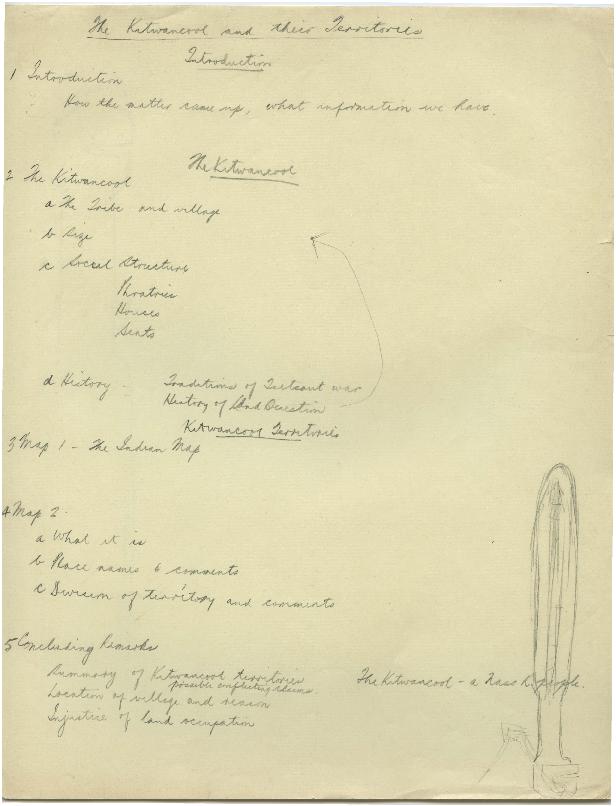 The Kitwancool and their Territories
Introduction
1 Introduction
How the matter came up, what information we have.
The Kitwancool
2 The Kitwancool
a The Tribe and village
b Size
c Social Structure
Phratries
Houses
Seats
d History - Traditions of Tsetsaut war
History of Land Question
Kitwancool Territories
3 Map 1 - The Indian Map
4 Map 2
a What it is
b Place names & comments
c Division of territory and comments
5 Concluding Remarks
Summary of Kitwancool territories
possible conflicting claims.
Location of village and reason
Injustice of land occupation
The Kitwancool - a Nass R. people.